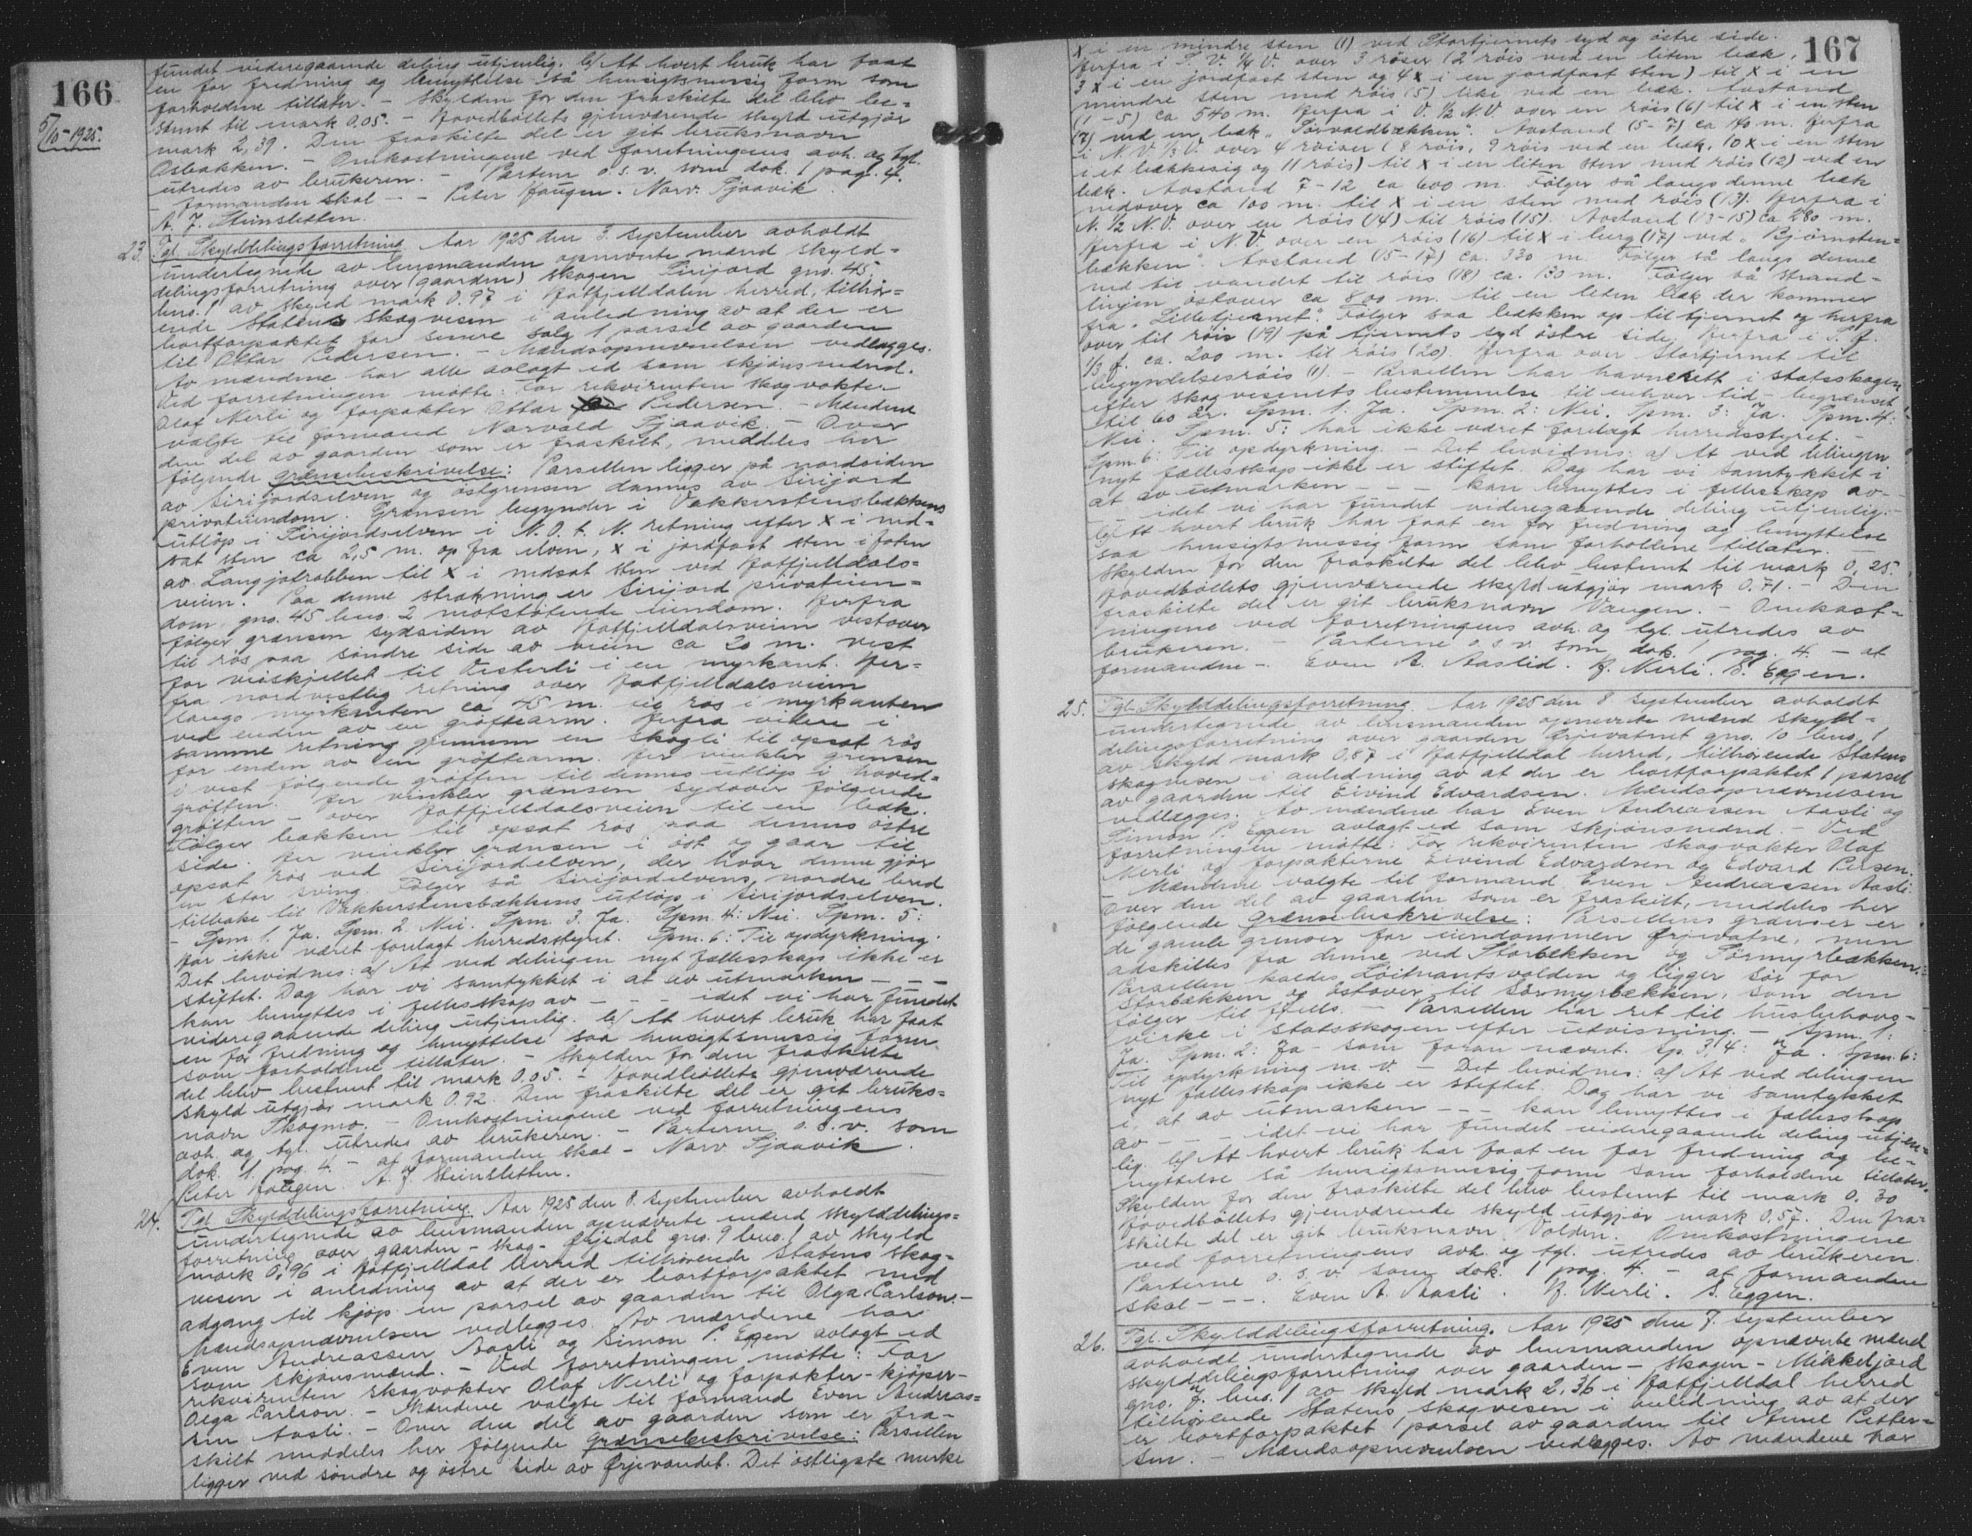 166
5/10-1925.
fundet videregaaende deling utjenlig. b/ At hvert bruk har faat
en for fredning og benyttelse så hensigtsmessig form som
forholdene tillater. - Skylden for den fraskilte del blev be-
stemt til mark 0,05. - Hovedbøllets gjenværende skyld utgjør
mark 2,39. Den fraskilte del er git bruksnavn
Osbakken. - Omkostningene ved forretningens avh. og tgl.
utredes av brukeren. - Partene o.s.v. som dok. 1 pag. 4.
- formanden skal - - Peter Haugen. Narv. Sjaavik.
A. J. Steinsletten.
23. Tgl. Skylddelingsforretning. Aar 1925 den 3. september avholdt
undertegnede av lensmanden opnevnte mænd skyld-
delingsforretning over (gaarden) skogen Sirijord gno. 45.
bno. 1 av skyld mark 0.97 i Hatfjelldalen herred, tilhør-
ende Statens skogvesen i anledning av at der er
bortforpaktet for senere salg 1 parsel av gaarden
til Ottar Pedersen. - Mændsopnevnelsen vedlægges.
Av mændene har alle avlagt ed som skjønsmænd.
Ved forretningen møtte: For rekvirenten skogvokter
Olaf Nerli og forpakter Ottar Pedersen. - Mændene
valgte til formand Narvald Sjaavik. - Over
den del av gaarden som er fraskilt, meddeles her
følgende grænsebeskrivelse: Parsellen ligger på nordsiden
av Sirijordselven og østgrensen dannes av Sirijord
privateiendom. Grænsen begynder i Vakkerstensbækkens
utløp i Sirijordselven i N.O.t.N. retning efter x i ned-
sat sten ca 2,5 m. op fra elven, x i jordfast sten i foten
av Langjotrabben til x i nedsat sten ved Hatfjelldals-
veien. Paa denne strækning er Sirijord privateien-
dom, gno. 45 bno. 2 motstøtende eiendom. Herfra
følger grænsen sydsiden av Hatfjelldalsveien vestover
til rös paa søndre side av veien ca 20 m. vest
for veiskjellet til Vesterli i en myrkant. Her-
fra nordvestlig retning over Hatfjelldalsveien
langs myrkanten ca 45 m. til rös i myrkanten
ved enden av en grøftearm. Herfra videre i
samme retning gjennem en skogli til opsat rös
for enden av en grøftearm. Her vinkler grænsen
i vest følgende grøften til dennes utløp i hoved-
grøften. Her vinkler grænsen sydover følgende
grøften - over Hatfjelldalsveien til en bæk.
Følger bækken til opsat rös paa dennes østre
side. Her vinkler grænsen i øst og gaar til
opsat rös ved Sirijordelven, der hvor denne gjør
en stor sving. Følger så Sirijordelvens nordre bred
tilbake til Vakkerstensbækkens utløp i Sirijordselven.
- Spm. 1. Ja. Spm. 2 Nei. Spm. 3. Ja. Spm. 4: Nei. Spm. 5:
har ikke været forelagt herredsstyret. Spm. 6: Til opdyrkning.
Det bevidnes: a/ At ved delingen nyt fællesskap ikke er
stiftet. Dog har vi samtykket i at av utmarken - - -
kan benyttes i fellesskap av - - - idet vi har fundet
videregaaende deling utjenlig. b/ At hvert bruk har faat
en for fredning og benyttelse saa hensigtsmessig form
som forholdene tillater. - Skylden for den fraskilte
del blev bestemt til mark 0.05. - Hovedbøllets gjenværende
skyld utgjør mark 0.92. Den fraskilte del er git bruks-
navn Skogmo. - Omkostningene ved forretningens
avh. og tgl. utredes av brukeren. - Parterne o.s.v. som
dok. 1 pag. 4. - af formanden skal - Narv Sjaavik
Peter Haugen. A. J. Steinsletten.
24. Tgl. Skylddelingsforretning. Aar 1925 den 8. september avholdt
undertegnede av lensmanden opnævnte mænd skylddelings-
forretning over gaarden - skog - Ørjedal gno. 9 bno. 1 av skyld
mark 0,96 i Hatfjelldal herred tilhørende Statens skog-
vesen i anledning av at der er bortforpaktet med
adgang til kjøp en parsel av gaarden til Olga Carlson. -
Mændsopnævnelsen vedlegges. Av mændene har
Even Andreassen Aasli og Simon P. Eggen avlagt ed
som skjønsmænd. - Ved forretningen møtte: For
rekvirenten skogvokter Olaf Nerli og forpakter - kjøper -
Olga Carlson. - Mændene valgte til formand Even Andreas-
sen Aasli. - Over den del av gaarden som er fra-
skilt meddeles her følgende Grænsebeskrivelse: Parsellen
ligger ved søndre og østre side av Ørjevandet. Det østligste merke
167
x i en mindre sten (1) ved Stortjernets syd og østre side.
Herfra i S.V. 1/4 V. over 3 röser (2 röis ved en liten bæk,
3 x i en jordfast sten og 4 x i en jordfast sten) til x i en
mindre sten med röis (5) like ved en bæk. Avstand
(1-5) ca 540 m. Herfra i V. 1/2 N.V. over en röis (6) til x i en sten
(7) ved en bæk "Torvaldbækken". Avstand (5-7) ca 140 m. Herfra
i N.V. 1/3 V. over 4 röiser (8 röis, 9 röis ved en bæk, 10 x i en sten
i et bækkesig og 11 röis) til x i en liten sten med röis (12) ved en
bæk. Avstand 7-12 ca 600 m. Følger så langs denne bæk
nedover ca 100 m. til x i en sten med röis (13). Herfra i
N. 1/2 N.V. over en röis (14) til röis (15). Avstand (13-15) ca 280 m.
Herfra i N.V. over en röis (16) til x i berg (17) ved "Bjørnsten-
bækken". Avstand (15-17) ca. 330 m. Følger så langs denne
ned til vandet til röis (18) ca. 130 m. Følger så strand-
linjen østover ca 800 m. til en liten bæk der kommer
fra "Lilletjernet". Følger saa bækken op til tjernet og herfra
over til röis (19) på tjernets syd østre side. Herfra i S. Ø.
1/3 Ø. ca. 200 m. til röis (20). Herfra over Stortjernet til
begyndelsesröis (1). - Parsellen har havnerett i statsskogen
efter skogvesenets bestemmelse til enhver tid, - begrænset
til 60 År. Spm. 1. Ja. Spm. 2: Nei. Spm. 3: Ja. Spm. 4:
Nei. Spm. 5: har ikke været forelagt herredsstyret. -
Spm. 6: Til opdyrkning. - Det bevidnes: a/ At ved delingen
nyt fællesskap ikke er stiftet. Dog har vi samtykket i
at av utmarken - - - kan benyttes i fellesskap av -
- - idet vi har fundet videregaaende deling utjenlig. -
b/ At hvert bruk har faat en for fredning og benyttelse
saa hensigtsmessig form som forholdene tillater. -
Skylden for den fraskilte del blev bestemt til mark 0,25.
Hovedbøllets gjenværende skyld utgjør mark 0.71. Den
fraskilte del er git bruksnavn Vangen. - Omkost-
ningene ved forretningens avh. og tgl. utredes av
brukeren. - Parterne o.s.v. som dok. 1 pag. 4 - at
formanden -. Even A. Aaslid. K. Nerli. S. Eggen.
25. Tgl. Skylddelingsforretning. Aar 1925 den 8 september avholdt
undertegnede av lensmanden opnevnte mænd skyld-
delingsforretning over gaarden Ørjevatnet gno. 10 bno. 1
av skyld mark 0,87 i Hatfjelldal herred, tilhørende Statens
skogvesen i anledning av at der er bortforpaktet 1 parsel
av gaarden til Eivind Edvardsen. Mændsopnævnelsen
vedlægges. Av mændene har Even Andreassen Aasli og
Simon P. Eggen avlagt ed som skjønsmænd. - Ved
forretningen møtte: For rekvirenten skogvokter Olaf
Nerli og forpakterne Eivind Edvardsen og Edvard Persen.
- Mændene valgte til formand Even Andreassen Aasli.
Over den del av gaarden som er fraskilt, meddeles her
følgende Grænsebeskrivelse: Parsellens grænser er
de gamle grenser for eiendommen Ørjevatne, men
adskilles fra denne ved Storbekken og Sørmyrbækken:
Parsellen kaldes Löitnantsvolden og ligger sør for
Storbækken og østover til Sørmyrbekken, som den
følger til fjells. - Parsellen har ret til husbehovs-
virke i Statsskogen efter utvisning. - Spm. 1:
Ja. Spm. 2: Ja - som foran nævnt. Sp. 3, 4: Ja. Spm. 6:
Til opdyrkning m.v. - Det bevidnes: a/ At ved delingen
nyt fællesskap ikke er stiftet. Dog har vi samtykket
i, at av utmarken - - - kan benyttes i fællesskap
av - - - idet vi har fundet videregaaende deling utjen-
lig. b/ At hvert bruk har faat en for fredning og be-
nyttelse så hensigtsmessig form som forholdene tillater.
Skylden for den fraskilte del blev bestemt til mark 0.30
Hovedbøllets gjenværende skyld utgjør mark 0,57. Den fra-
skilte del er git bruksnavn Volden. Omkostningene
ved forretningens avh. og tgl. utredes av brukeren.
Parterne o.s.v. som dok. 1 pag. 4. - at formanden
skal - - -. Even A. Aasli. K. Nerli. S. Eggen.
26. Tgl. Skylddelingsforretning. Aar 1925 den 7. september
avholdt undertegnede av lensmanden opnævnte mænd
skylddelingsforretning over gaarden - skogen - Mikkeljord
gno. 7. bno. 1 av skyld mark 2,36 i Hatfjelldal herred
tilhørende Statens skogvesen i anledning av at der
er bortforpaktet 1 parsel av gaarden til Anne Peder-
sen. - Mændsopnevnelsen vedlegges. Av mændene har